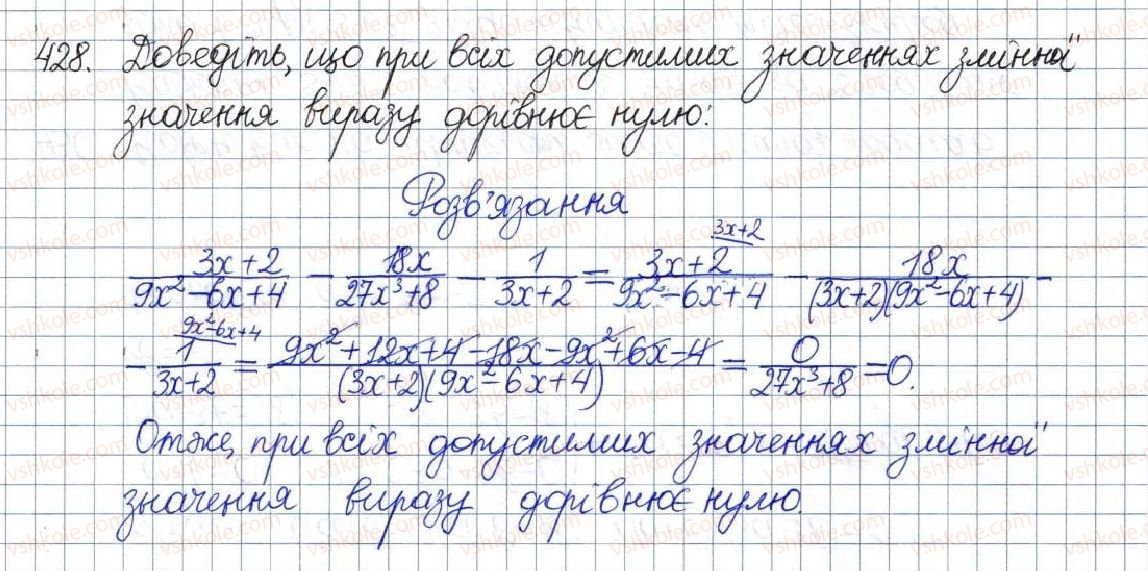 428. Доведіть, що при всіх допустимих значеннях змінної
значення виразу дорівнює нулю:
Розв'язання
(3x+2)/(9x²-6x+4) - 18x/(27x³+8) - 1/(3x+2) = (3x+2)/(9x²-6x+4) ^(3x+2) - 18x/((3x+2)(9x²-6x+4)) -
- 1/(3x+2) ^(9x²-6x+4) = (9x²+12x+4-18x-9x²+6x-4)/((3x+2)(9x²-6x+4)) = 0/(27x³+8) = 0.
Отже, при всіх допустимих значеннях змінної
значення виразу дорівнює нулю.